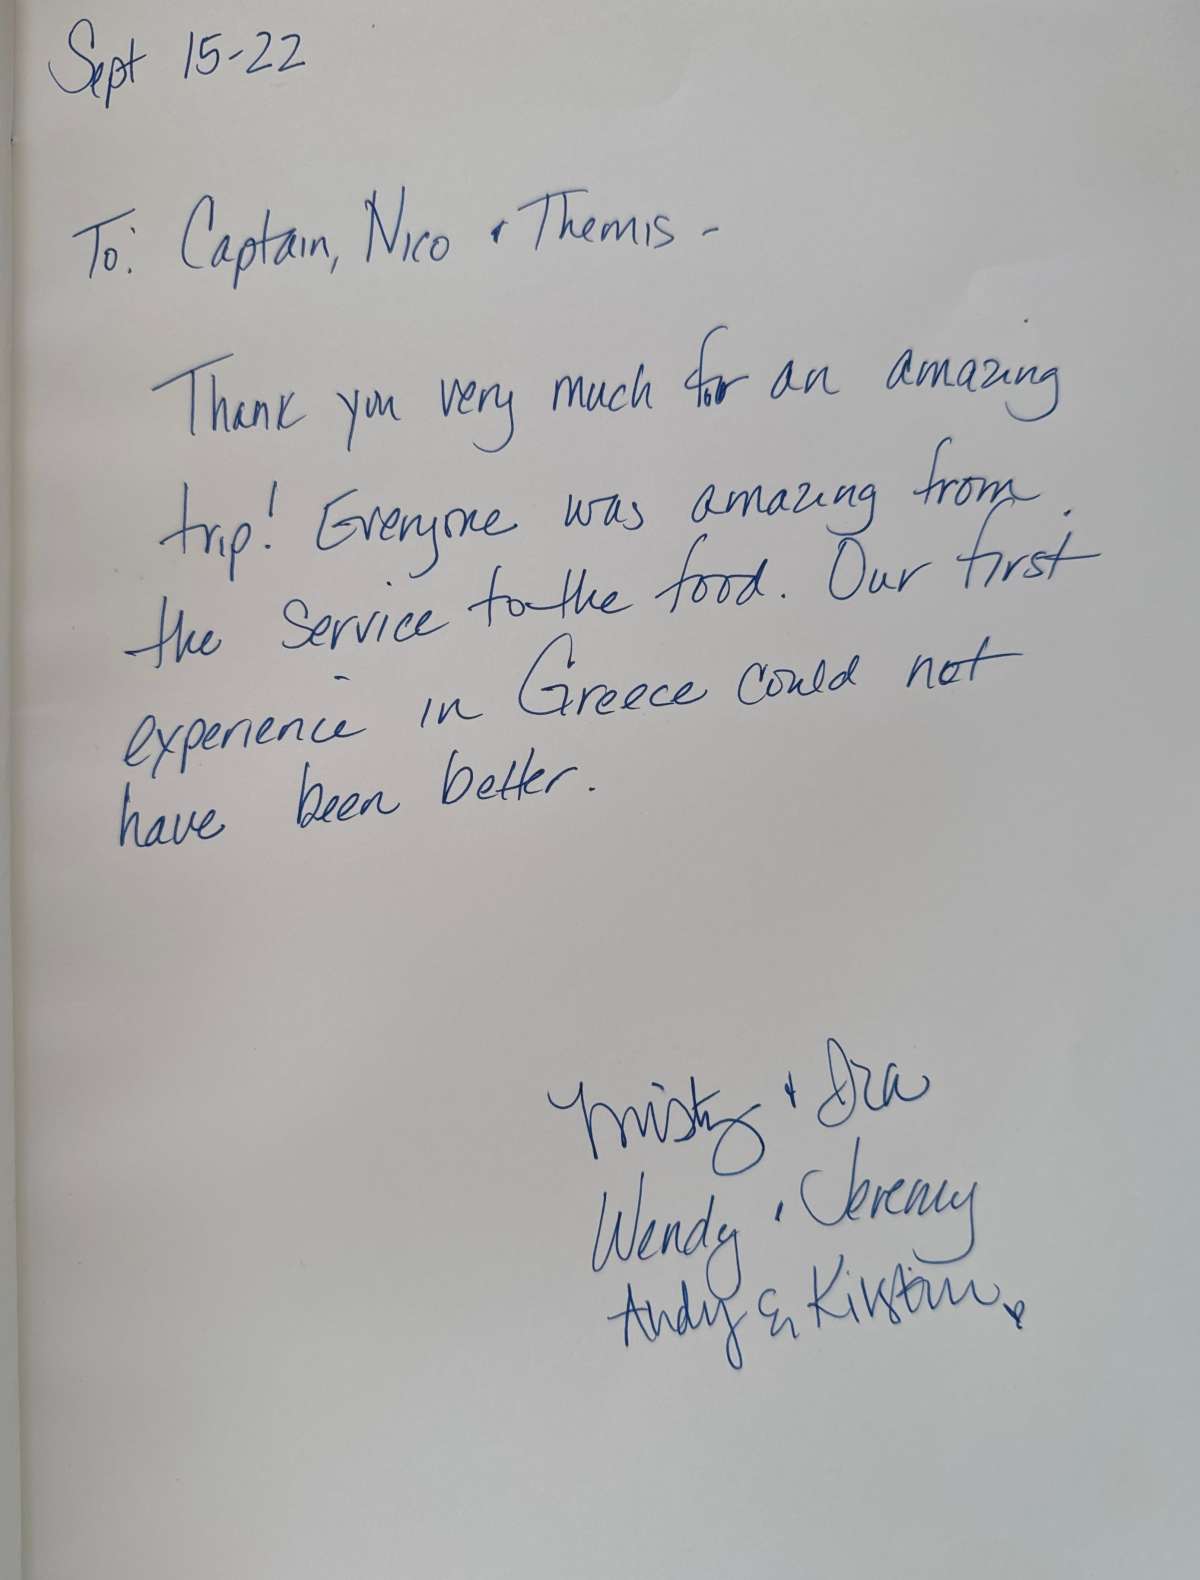 Sept 15-22
To: Captain, Nico & Themis -
Thank you very much for an amazing
trip! Everyone was amazing from
the service to the food. Our first
experience in Greece could not
have been better.
Misty + Ira
Wendy + Jeremy
Andy & Kirstin